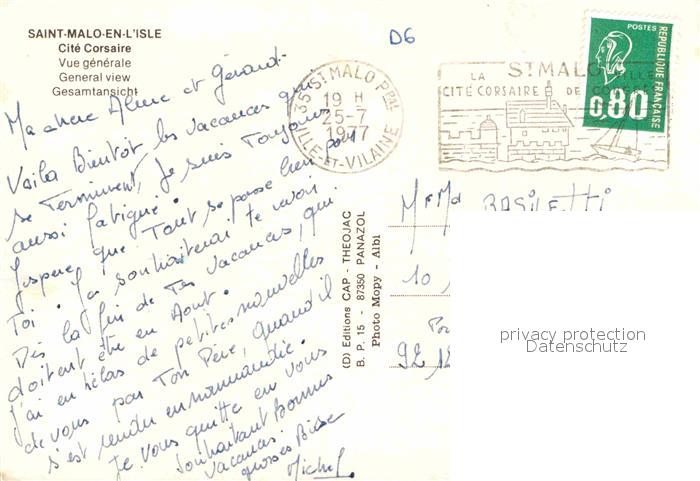 SAINT-MALO-EN-L'ISLE
Cité Corsaire
Vue générale
General view
Gesamtansicht
D6
35 ST MALO PPAL
19 H
25-7
1977
ILLE-ET-VILAINE
ST MALO
LA
CITÉ CORSAIRE DE
POSTES
REPUBLIQUE FRANÇAISE
0,80
Ma chere Aline et Gérard.
Voila Bientot les vacances qui
se Terminent, Je suis Toujours
aussi fatigué.
J'espere que Tout se passe bien pour
Toi. Ja souhaiterai te revoir
Dès la fin de Tes vacances, qui
doitent être en Aout.
J'ai en hélas de petites nouvelles
de vous par Ton Père, quand il
s'est rendu en normandie.
Je vous quitte en vous
souhaitant Bonnes
vacances.
grosses Bise
Michel.
(D) Editions CAP - THEOJAC
B. P. 15 - 87350 PANAZOL
Photo Mopy - Albi
Mr Md BASILETTI
10
92
privacy protection
Datenschutz